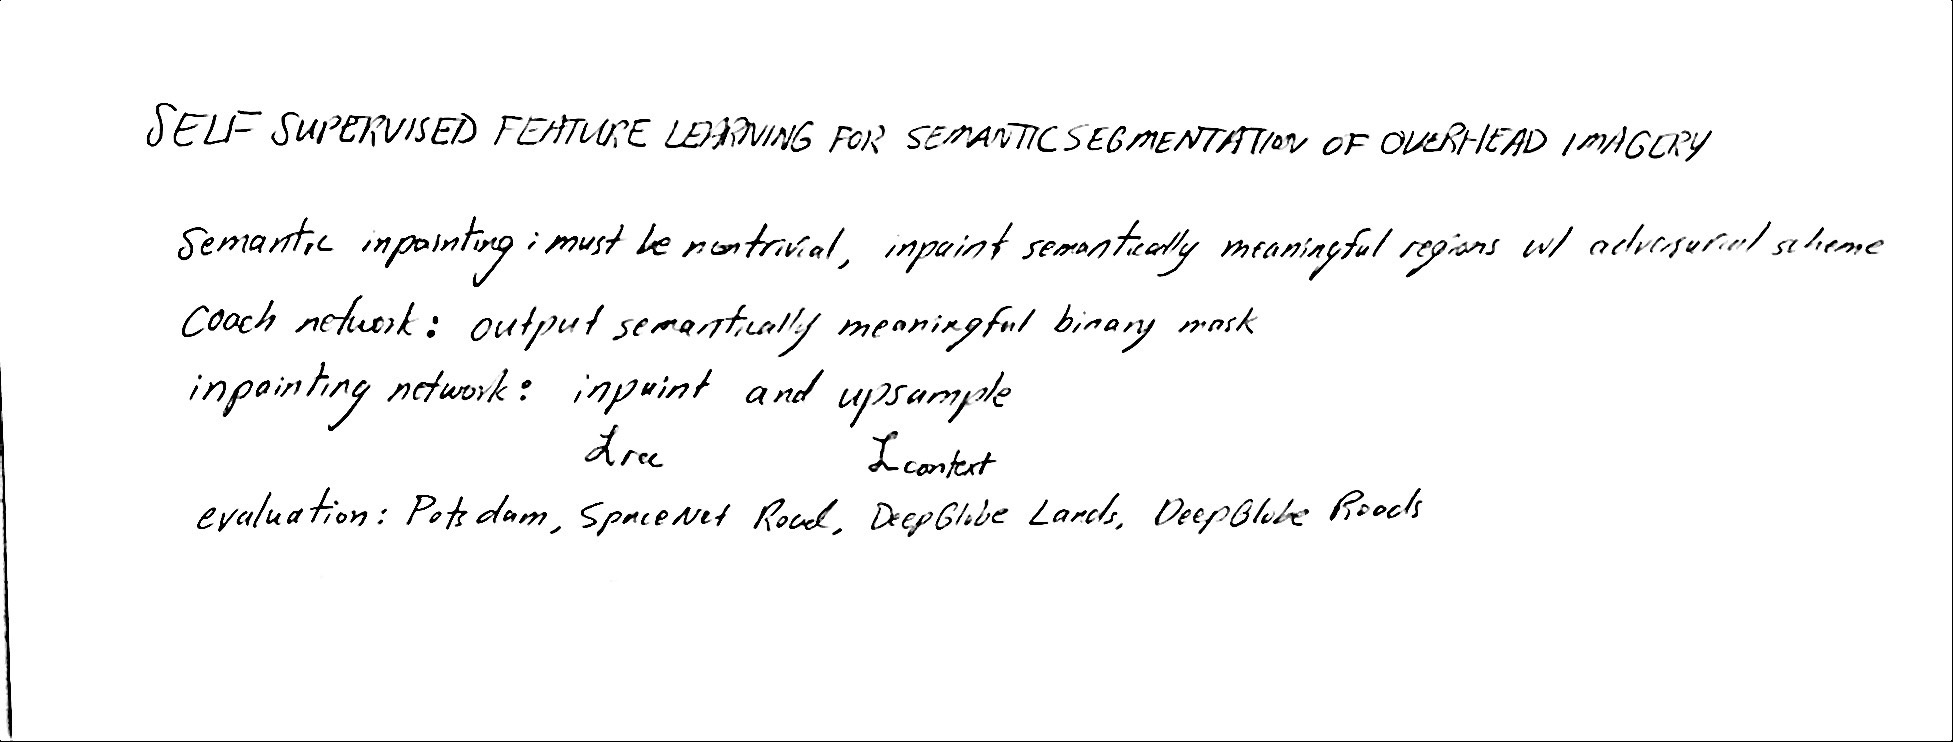 SELF SUPERVISED FEATURE LEARNING FOR SEMANTIC SEGMENTATION OF OVERHEAD IMAGERY
Semantic inpainting: must be nontrivial, inpaint semantically meaningful regions w/ adversarial scheme
Coach network: output semantically meaningful binary mask
inpainting network: inpaint and upsample
ℒrec ℒcontext
evaluation: Potsdam, SpaceNet Road, DeepGlobe Lands, DeepGlobe Roads